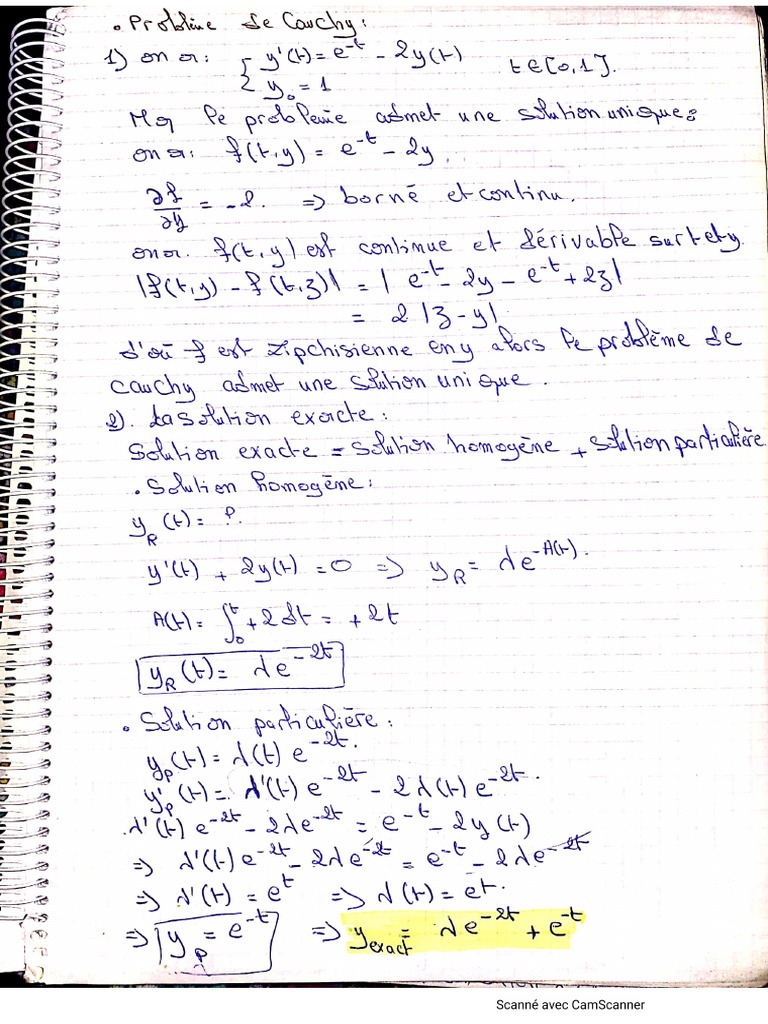 • Problème de Cauchy :
1) on a : { y'(t) = e^-t - 2y(t)    t ∈ [0,1].
{ y_0 = 1
Mq le problème admet une solution unique :
on a : f(t,y) = e^-t - 2y.
∂f/∂y = -2. => borné et continu.
on a. f(t,y) est continue et dérivable sur t et y.
|f(t,y) - f(t,z)| = | e^-t - 2y - e^-t + 2z|
= 2 |z - y|
d'où f est Lipchisienne en y alors le problème de
cauchy admet une solution unique.
2). La solution exacte :
Solution exacte = solution homogène + solution particulière
• Solution homogène :
y_R(t) = ?
y'(t) + 2y(t) = 0 => y_R = λe^-A(t).
A(t) = ∫_0^t +2 dt = +2t
y_R(t) = λe^-2t
• Solution particulière :
y_p(t) = λ(t) e^-2t.
y'_p(t) = λ'(t) e^-2t - 2λ(t) e^-2t.
λ'(t) e^-2t - 2λe^-2t = e^-t - 2y(t)
=> λ'(t) e^-2t - 2λe^-2t = e^-t - 2λe^-2t
=> λ'(t) = e^t => λ(t) = e^t.
=> y_p = e^-t => y_exact = λe^-2t + e^-t
Scanné avec CamScanner